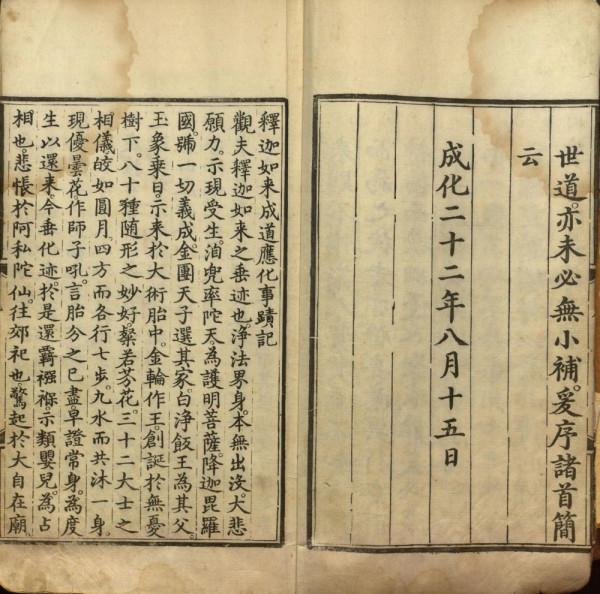 世道亦未必無小補爰序諸首簡
云
成化二十二年八月十五日
釋迦如來成道應化事蹟記
觀夫釋迦如來之垂迹也。淨法界身。本無出沒。大悲
願力。示現受生。洎兜率陀天。為護明菩薩。降迦毘羅
國。號一切義成。金團天子選其家。白淨飯王為其父。
玉象乗日。示來於大術胎中。金輪作王。創誕於無憂
樹下。八十種随形之妙好。粲若芬花。三十二大士之
相儀。皎如圓月。四方而各行七步。九水而共沐一身。
現優曇花。作師子吼。言胎分之已盡。早證常身。為度
生以還來。今垂化迹。於是還覊襁褓。示類嬰兒。為占
相也。悲悵於阿私陀仙。往郊祀也。驚起於大自在廟。